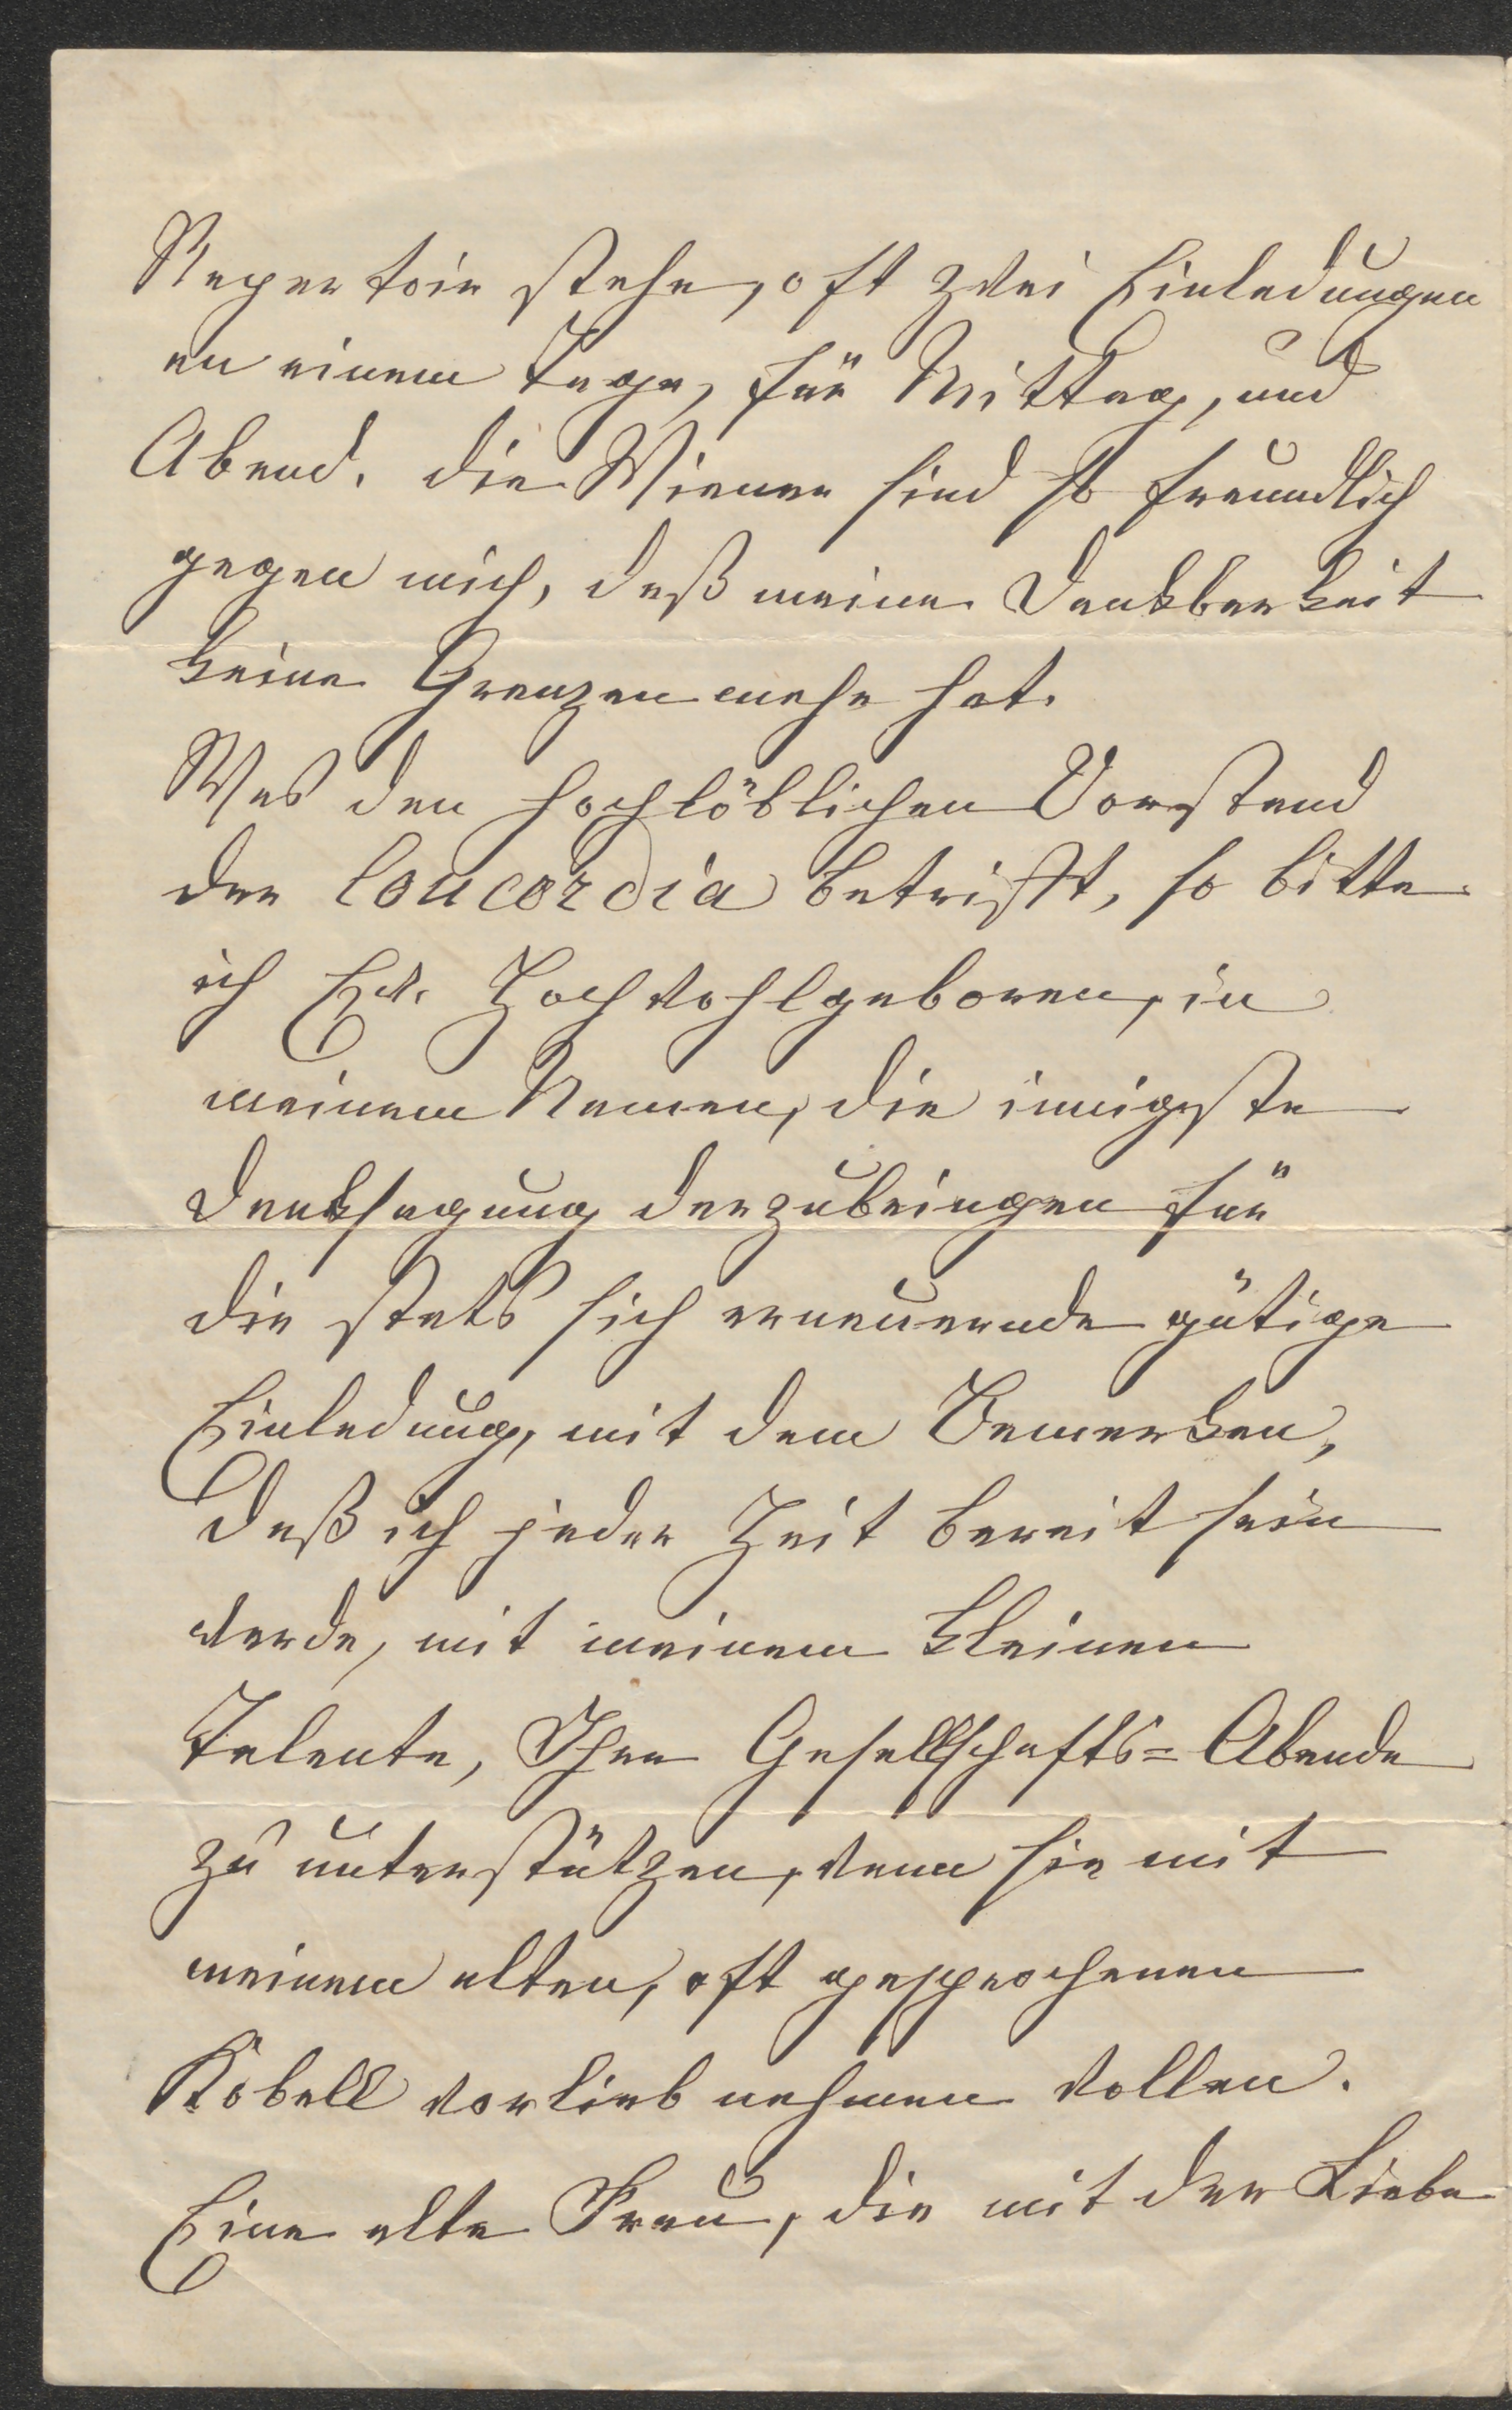 Repertoir stehe, oft zwei Einladungen
an einem Tage, für Mittag, und
Abend. Die Wiener sind so freundlich
gegen mich, daß meine Dankbarkeit
keine Grenzen mehr hat.
Was den hochlöblichen Vorstand
der Concordia betrifft, so bitte
ich Ew. Hochwohlgeboren, in
meinem Namen, die innigste
Danksagung darzubringen für
die stets sich erneuernde gütige
Einladung, mit dem Bemerken,
daß ich jeder Zeit bereit sein
werde, mit meinem kleinen
Talente, Ihre Gesellschafts-Abende
zu unterstützen, wenn sie mit
meinem alten, oft gesprochenen
Kobell vorlieb nehmen wollen.
Eine alte Frau, die mit der Liebe